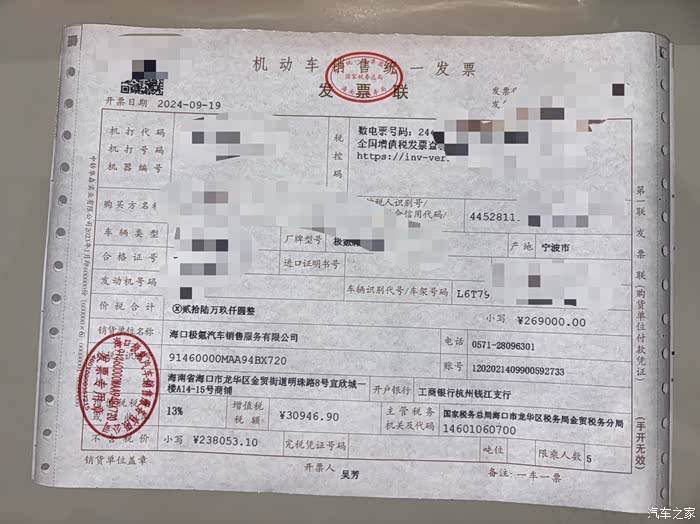 机动车销售统一发票
发票联
国家税务总局
开票日期 2024-09-19
机打代码
机打号码
机器编号
税控码
数电票号码: 244
全国增值税发票查
https://inv-ver
购买方名称
纳税人识别号/
4452811
车辆类型
厂牌型号 极氪
产地 宁波市
合格证号
进口证明书号
发动机号码
车辆识别代号/车架号码 L6T79
价税合计 ⓧ贰拾陆万玖仟圆整 小写 ¥269000.00
销货单位名称 海口极氪汽车销售服务有限公司 电话 0571-28096301
91460000MAA94BX720 账号 1202021409900592733
海南省海口市龙华区金贸街道明珠路8号宜欣城一楼A14-15号商铺 开户银行 工商银行杭州钱江支行
13% 增值税税额 ¥30946.90 主管税务机关及代码 国家税务总局海口市龙华区税务局金贸税务分局
14601060700
不含税价 小写 ¥238053.10 完税凭证号码 吨位 限乘人数 5
销货单位盖章 开票人 吴芳 备注: 一车一票
第一联 发票联 (购货单位付款凭证)
(手开无效)
海口极氪汽车销售服务有限公司
91460000MAA94BX720
发票专用章
汽车之家